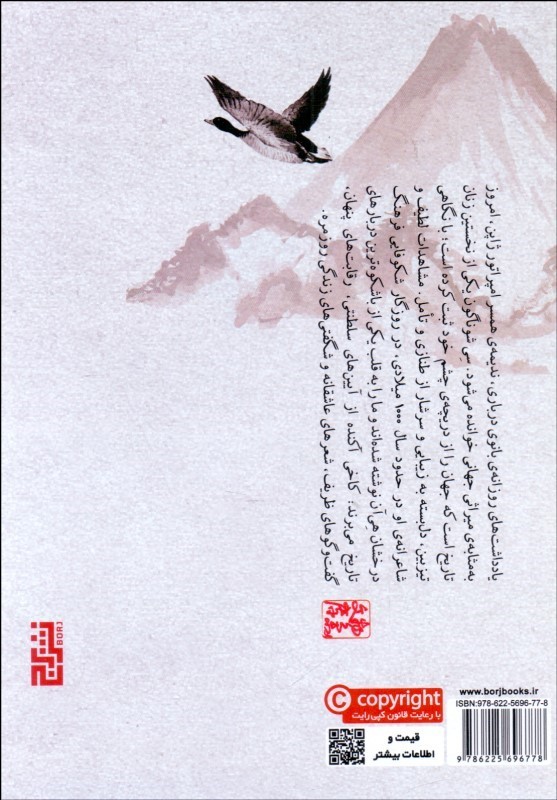 یادداشت‌های روزانه‌ی بانوی درباری، ندیمه‌ی همسر امپراتور ژاپن، امروز
به‌مثابه‌ی میراثی جهانی خوانده می‌شود. سِی شوناگون یکی از نخستین زنان
تاریخ است که جهان را از دریچه‌ی چشم خود ثبت کرده است؛ با نگاهی
تیزبین، دل‌بسته به زیبایی و سرشار از طنازی و تأمل. مشاهدات لطیف و
شاعرانه‌ی او در حدود سال ۱۰۰۰ میلادی، در روزگار شکوفایی فرهنگ
درخشان هِی‌آن نوشته شده‌اند و ما را به قلب یکی از باشکوه‌ترین دربارهای
تاریخ می‌برند؛ کاخی آکنده از آیین‌های سلطنتی، رقابت‌های پنهان،
گفت‌وگوهای ظریف، شعرهای عاشقانه و شگفتی‌های زندگی روزمره.
برج
BORJ
© copyright
با رعایت قانون کپی‌رایت
قیمت و
اطلاعات بیشتر
www.borjbooks.ir
ISBN:978-622-5696-77-8
9 786225 696778